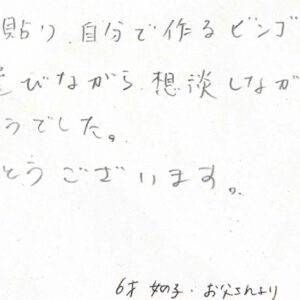 貼り、自分で作るビンゴ
びながら、想談しなが
うでした。
とうございます。
6才 女の子・お父さんより